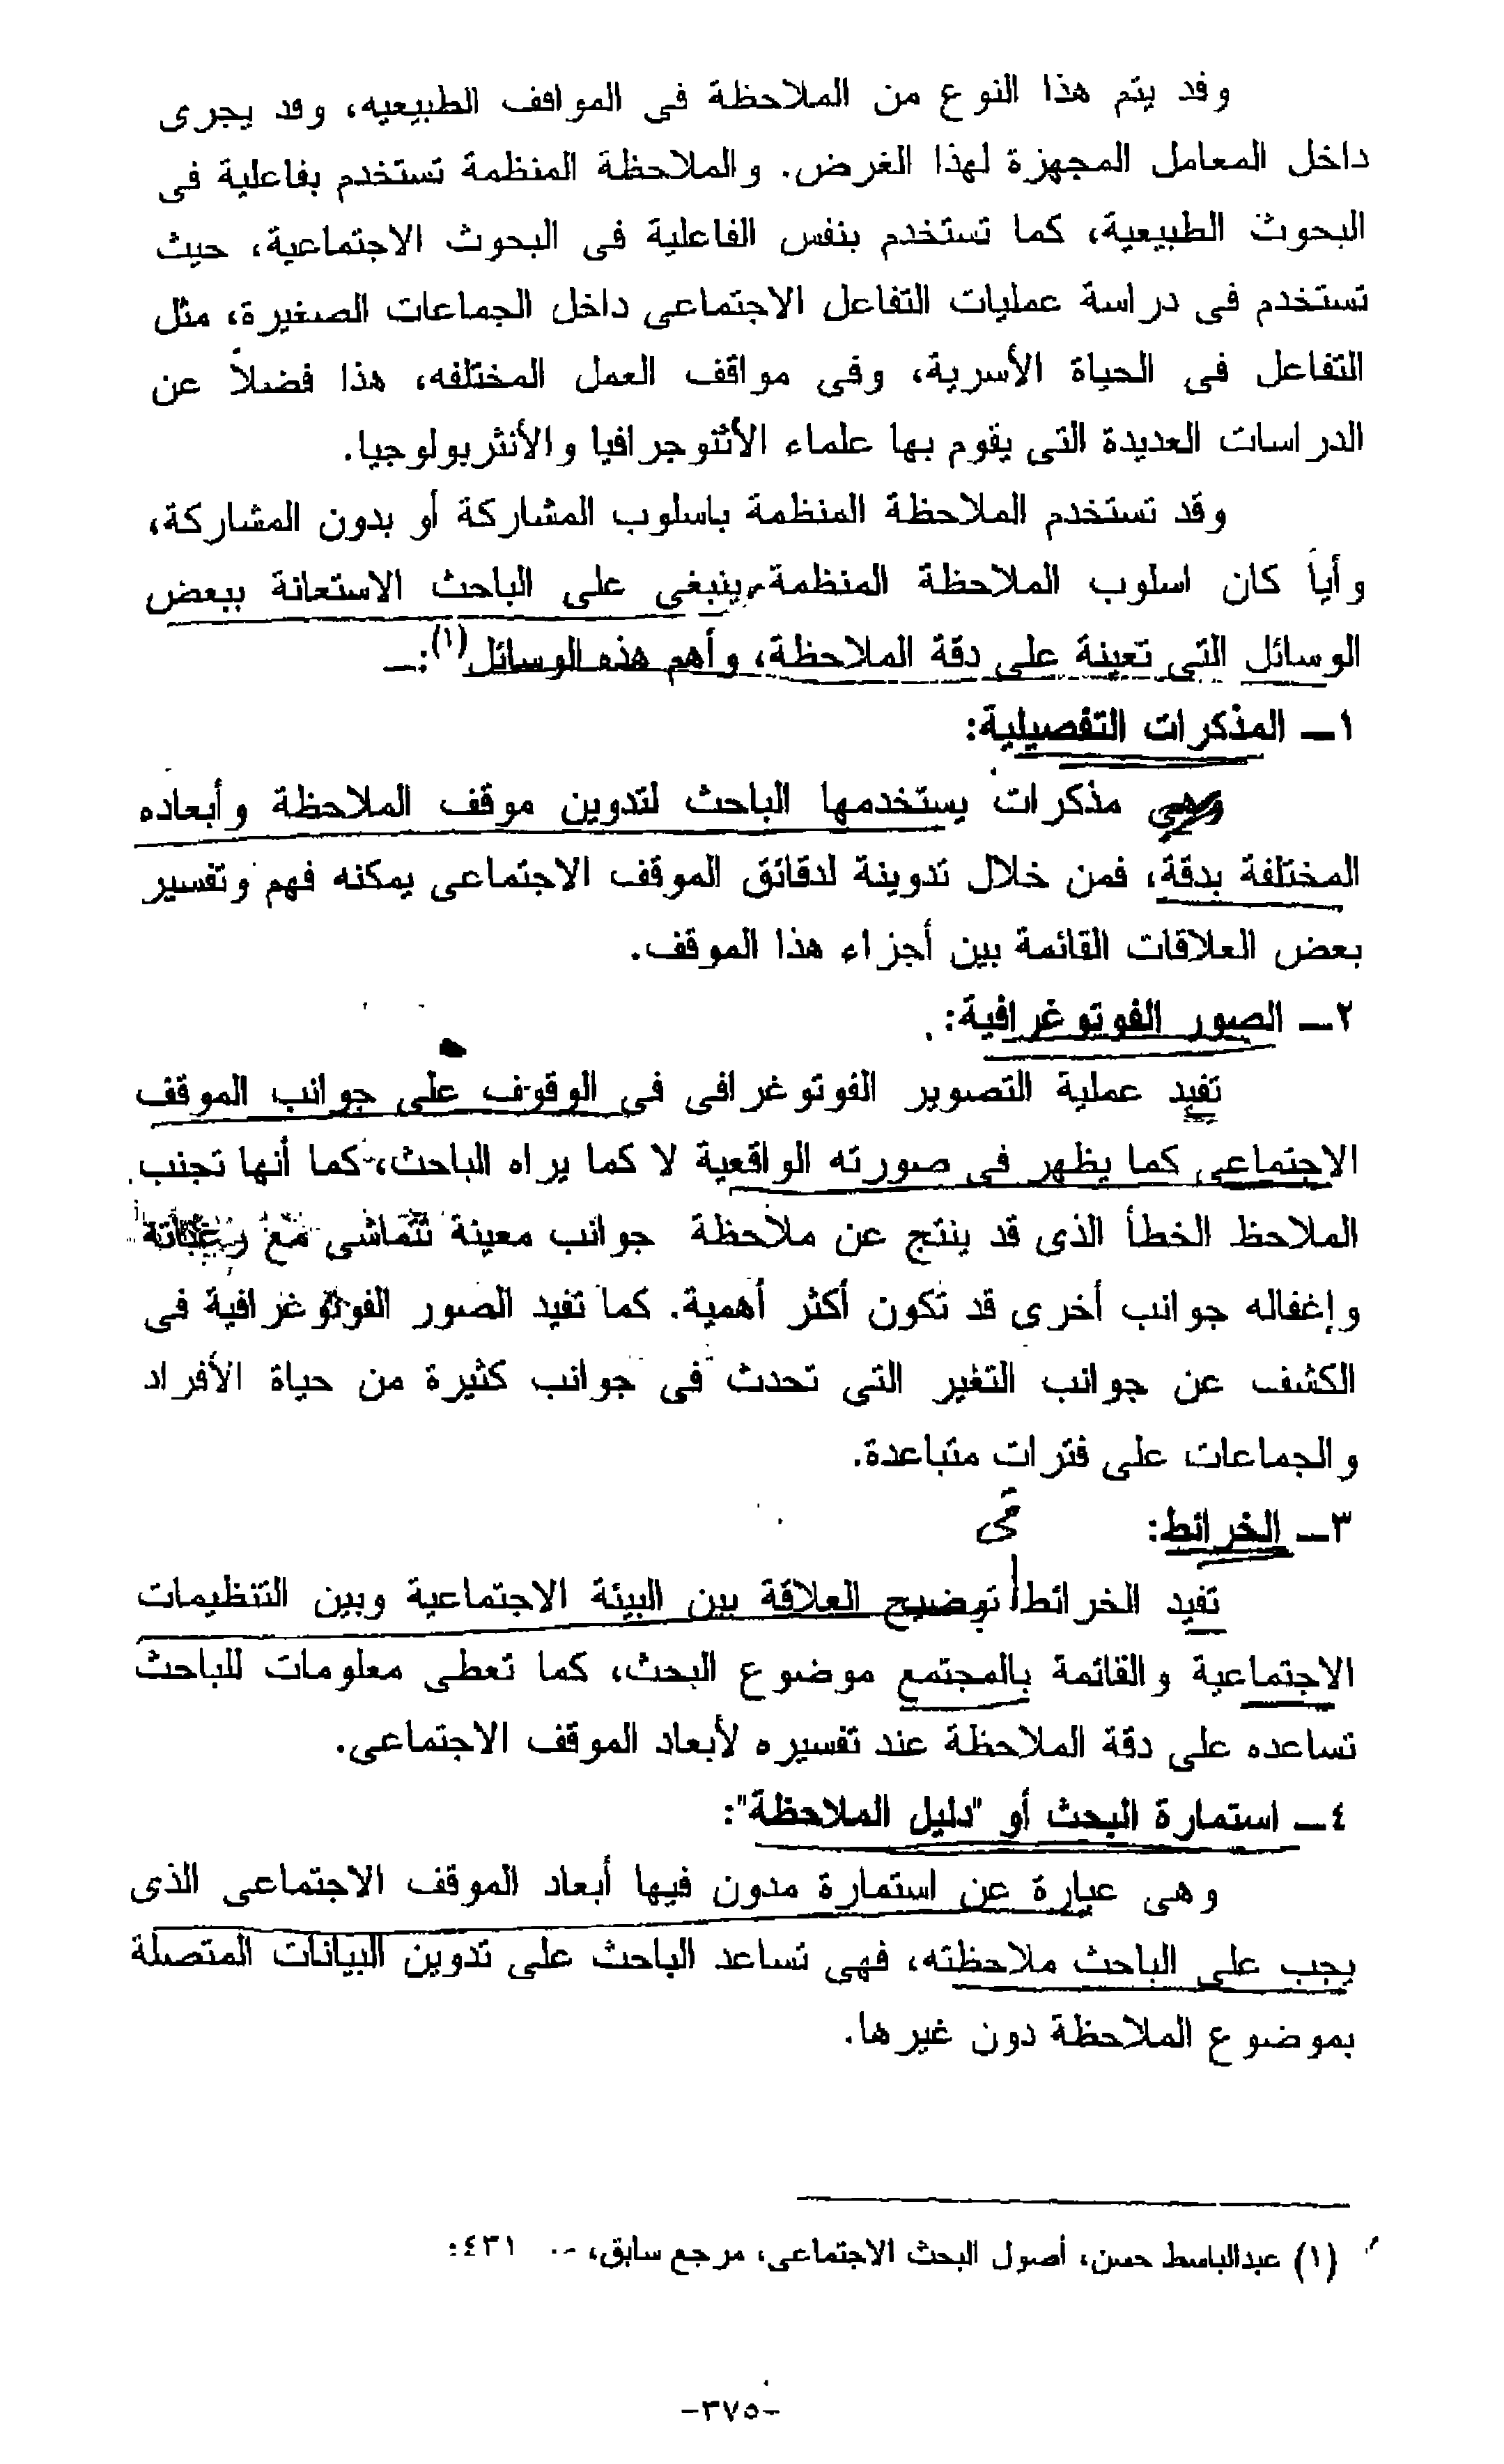 وقد يتم هذا النوع من الملاحظة فى المواقف الطبيعيه، وقد يجرى
داخل المعامل المجهزة لهذا الغرض. والملاحظة المنظمة تستخدم بفاعلية فى
البحوث الطبيعية، كما تستخدم بنفس الفاعلية فى البحوث الاجتماعية، حيث
تستخدم فى دراسة عمليات التفاعل الاجتماعى داخل الجماعات الصغيرة، مثل
التفاعل فى الحياة الأسرية، وفى مواقف العمل المختلفه، هذا فضلاً عن
الدراسات العديدة التى يقوم بها علماء الأثنوجرافيا والأنثربولوجيا.
وقد تستخدم الملاحظة المنظمة باسلوب المشاركة أو بدون المشاركة،
وأياً كان اسلوب الملاحظة المنظمة ينبغى على الباحث الاستعانة ببعض
الوسائل التى تعينة على دقة الملاحظة، وأهم هذه الوسائل(١):ـ
١ـ المذكرات التفصيلية:
وهى مذكرات يستخدمها الباحث لتدوين موقف الملاحظة وأبعاده
المختلفة بدقة، فمن خلال تدوينة لدقائق الموقف الاجتماعى يمكنه فهم وتفسير
بعض العلاقات القائمة بين أجزاء هذا الموقف.
٢ـ الصور الفوتوغرافية:
تفيد عملية التصوير الفوتوغرافى فى الوقوف على جوانب الموقف
الاجتماعى كما يظهر فى صورته الواقعية لا كما يراه الباحث، كما أنها تجنب
الملاحظ الخطأ الذى قد ينتج عن ملاحظة جوانب معينة تتماشى مع رغباتة
وإغفاله جوانب أخرى قد تكون أكثر أهمية. كما تفيد الصور الفوتوغرافية فى
الكشف عن جوانب التغير التى تحدث فى جوانب كثيرة من حياة الأفراد
والجماعات على فترات متباعدة.
٣ـ الخرائط:
فى
تفيد الخرائط توضيح العلاقة بين البيئة الاجتماعية وبين التنظيمات
الاجتماعية والقائمة بالمجتمع موضوع البحث، كما تعطى معلومات للباحث
تساعده على دقة الملاحظة عند تفسيره لأبعاد الموقف الاجتماعى.
٤ـ استمارة البحث أو "دليل الملاحظة":
وهى عبارة عن استمارة مدون فيها أبعاد الموقف الاجتماعى الذى
يجب على الباحث ملاحظته، فهى تساعد الباحث على تدوين البيانات المتصلة
بموضوع الملاحظة دون غيرها.
(١) عبدالباسط حسن، أصول البحث الاجتماعى، مرجع سابق، ٤٣١:
-٣٧٥-